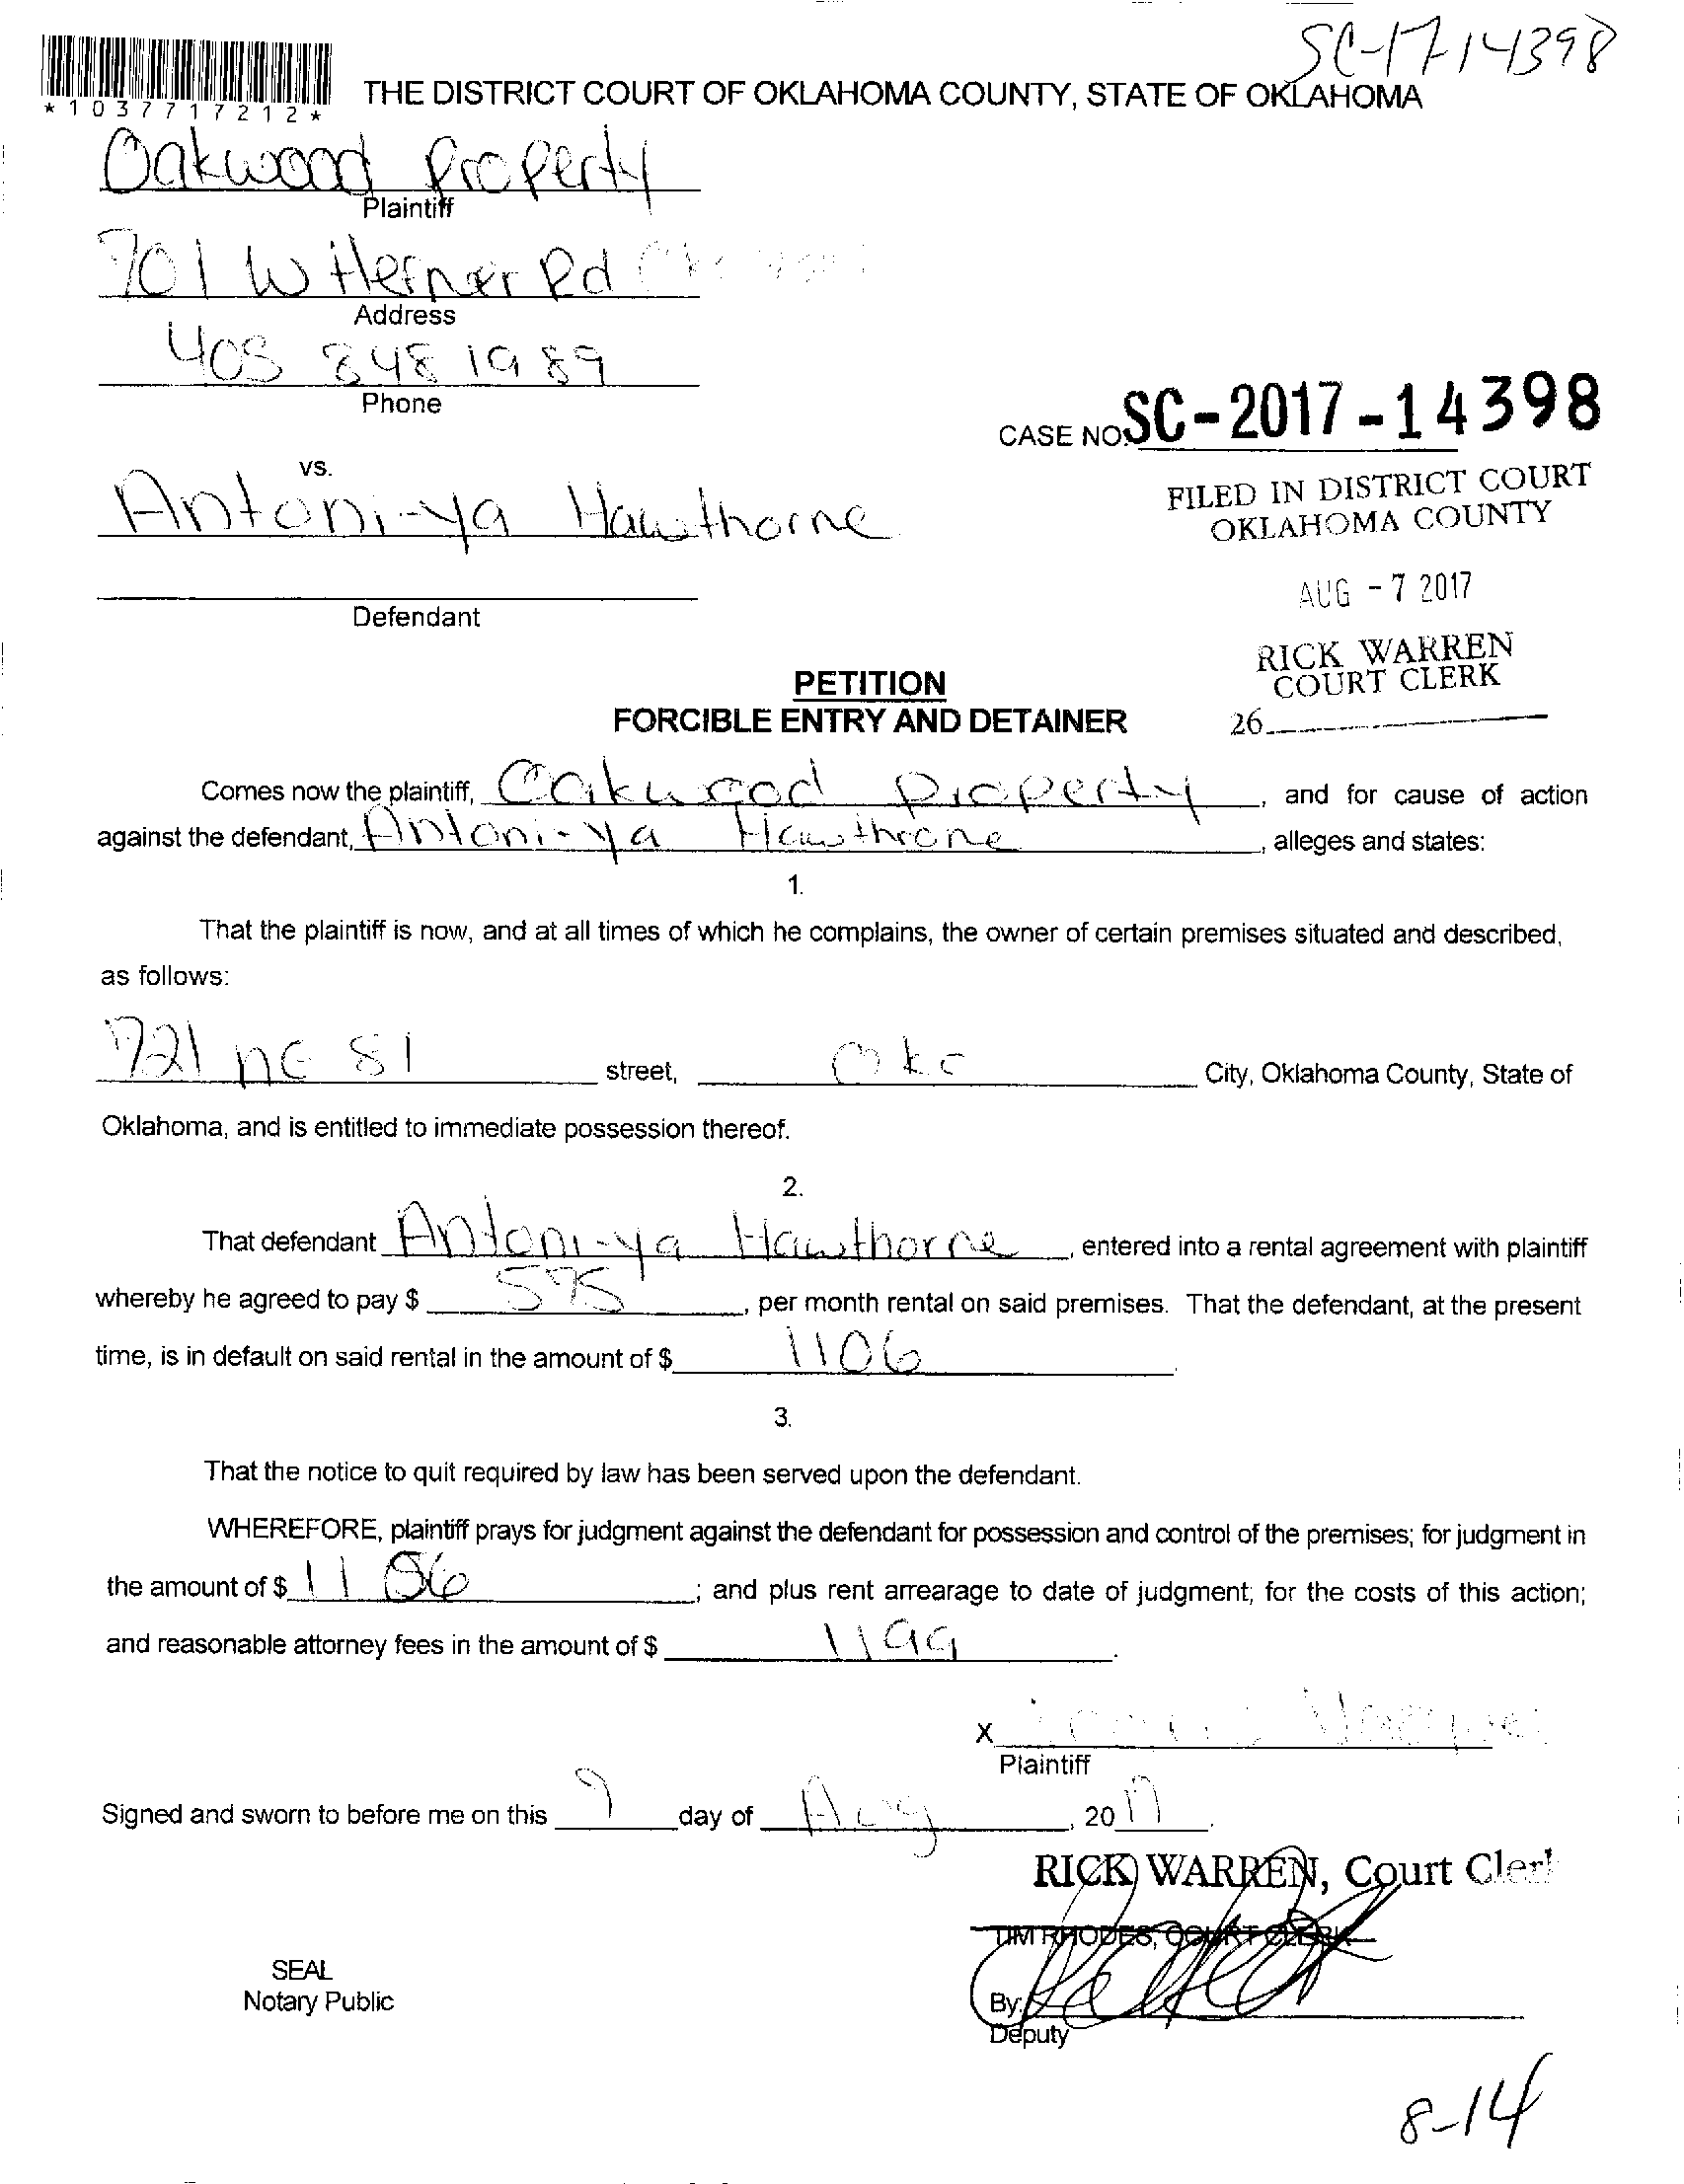 SC-17-14398
*1037717212*
THE DISTRICT COURT OF OKLAHOMA COUNTY, STATE OF OKLAHOMA
Oakwood Property
Plaintiff
701 W Hefner Rd
Address
405 848 1989
Phone
CASE NO. SC-2017-14398
vs.
Antoni-ya Hawthorne
FILED IN DISTRICT COURT
OKLAHOMA COUNTY
AUG - 7 2017
Defendant
RICK WARREN
COURT CLERK
26
PETITION
FORCIBLE ENTRY AND DETAINER
Comes now the plaintiff, Oakwood Property, and for cause of action
against the defendant, Antoni-ya Hawthrone, alleges and states:
1.
That the plaintiff is now, and at all times of which he complains, the owner of certain premises situated and described,
as follows:
721 NE 81 street, Okc City, Oklahoma County, State of
Oklahoma, and is entitled to immediate possession thereof.
2.
That defendant Antoni-ya Hawthorne, entered into a rental agreement with plaintiff
whereby he agreed to pay $ 575, per month rental on said premises. That the defendant, at the present
time, is in default on said rental in the amount of $ 1106.
3.
That the notice to quit required by law has been served upon the defendant.
WHEREFORE, plaintiff prays for judgment against the defendant for possession and control of the premises; for judgment in
the amount of $ 1106; and plus rent arrearage to date of judgment; for the costs of this action;
and reasonable attorney fees in the amount of $ 1199.
X
Plaintiff
Signed and sworn to before me on this 7 day of Aug, 2017.
RICK WARREN, Court Clerk
TIM RHODES, COURT CLERK
SEAL
Notary Public
By:
Deputy
8-14